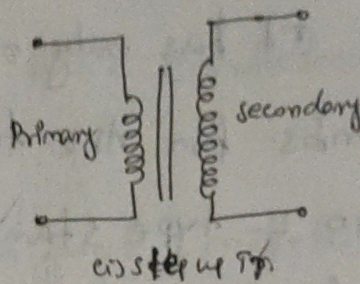 Primary
secondary
(i) step up T/f